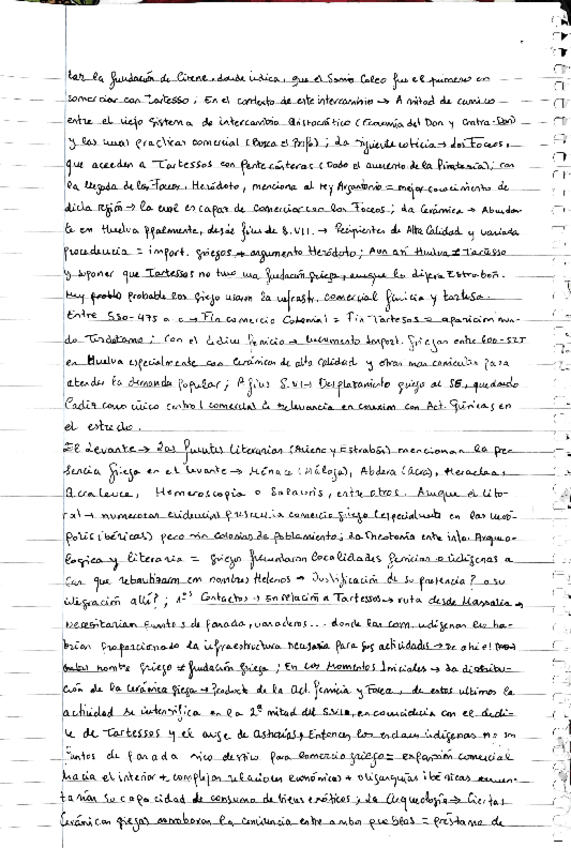 tar la fundación de Cirene, donde indica, que el Samio Coleo fue el primero en
comerciar con Tartesso; En el contexto de este intercambio → A mitad de camino
entre el viejo sistema de intercambio Aristocrático (Economía del Don y Contra-Don)
y las practicas comercial (Busca el Bnfo); La siguiente noticia → dos Foceos,
que acceden a Tartessos con pentecónteras (Dado el aumento de la Piratería); con
la llegada de los Foceos. Heródoto, menciona al rey Argantonio = mejor conocimiento de
dicha región → la cual es capaz de comerciar con los Foceos; La Cerámica → Abundan
te en Huelva ppalmente, desde fines de S.VII. → Recipientes de Alta Calidad y variada
procedencia = import. griegos → argumento Heródoto; Aun así Huelva ≠ Tartesso
y suponer que Tartessos no tuvo una fundación griega, aunque lo dijera Estrabón.
Muy probable los griego usaron la infraestr. comercial fenicia y tartesa.
Entre 550-475 a c → Fin comercio Colonial = Fin Tartesos = aparicion mun-
do Turdetano; Con el declive Fenicio → Incremento Import. Griegas entre 600-525
en Huelva especialmente con Cerámicas de alta calidad y otras mas para
atender la demanda popular; A fines S.VI → Desplazamiento griego al SE, quedando
Cadiz como único control comercial de relevancia en conexion con Act. Púnicas en
el estrecho.
El Levante → Las fuentes literarias (Avieno y Estrabón) mencionan la pre-
sencia Griega en el levante → Ménace (Málaga), Abdera (Adra), Heraclea,
Acraleuce, Homeroscopio o Salauris, entre otros. Aunque el lito-
ral → numerosas evidencias presencia comercio griego (especialmente en las necró-
polis ibéricas) pero sin colonias de poblamiento; La entre infor. Arqueo-
logica y literaria = griego localidades fenicias o indígenas a
las que rebautizaron con nombres Helenos → Justificación de su presencia? o su
integración allí?; 1os Contactos → En relación a Tartessos → ruta desde Massalia →
necesitarian puntos de parada, varaderos... donde las com. indígenas les ha-
brían proporcionado la infraestructura necesaria para sus actividades → De ahí el
nombre griego ≠ fundación griega; En los Momentos Iniciales → La distribu-
ción de la Cerámica griega → Producto de la Act. fenicia y Focea, de estos ultimos la
actividad se intensifica en la 2ª mitad del S.VI, en coincidencia con el decli-
ve de Tartessos y el auge de. Entonces los enclaves indígenas no son
puntos de parada sino destino para comercio griego = expansión comercial
hacia el interior + complejas relaciones económicas + oligarquías ibéricas aumen-
tarán su capacidad de consumo de bienes exóticos; La Arqueología → Ciertas
Cerámicas griegas corroboran la convivencia entre ambos pueblos = préstamo de